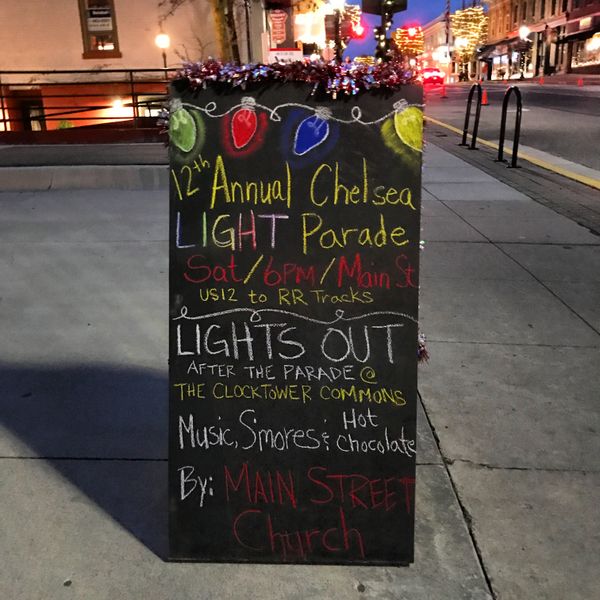 12th Annual Chelsea
LIGHT Parade
Sat/6PM/Main St
US12 to RR Tracks
LIGHTS OUT
AFTER THE PARADE @
THE CLOCKTOWER COMMONS
Music, S'mores & Hot
Chocolate
By: MAIN STREET
Church